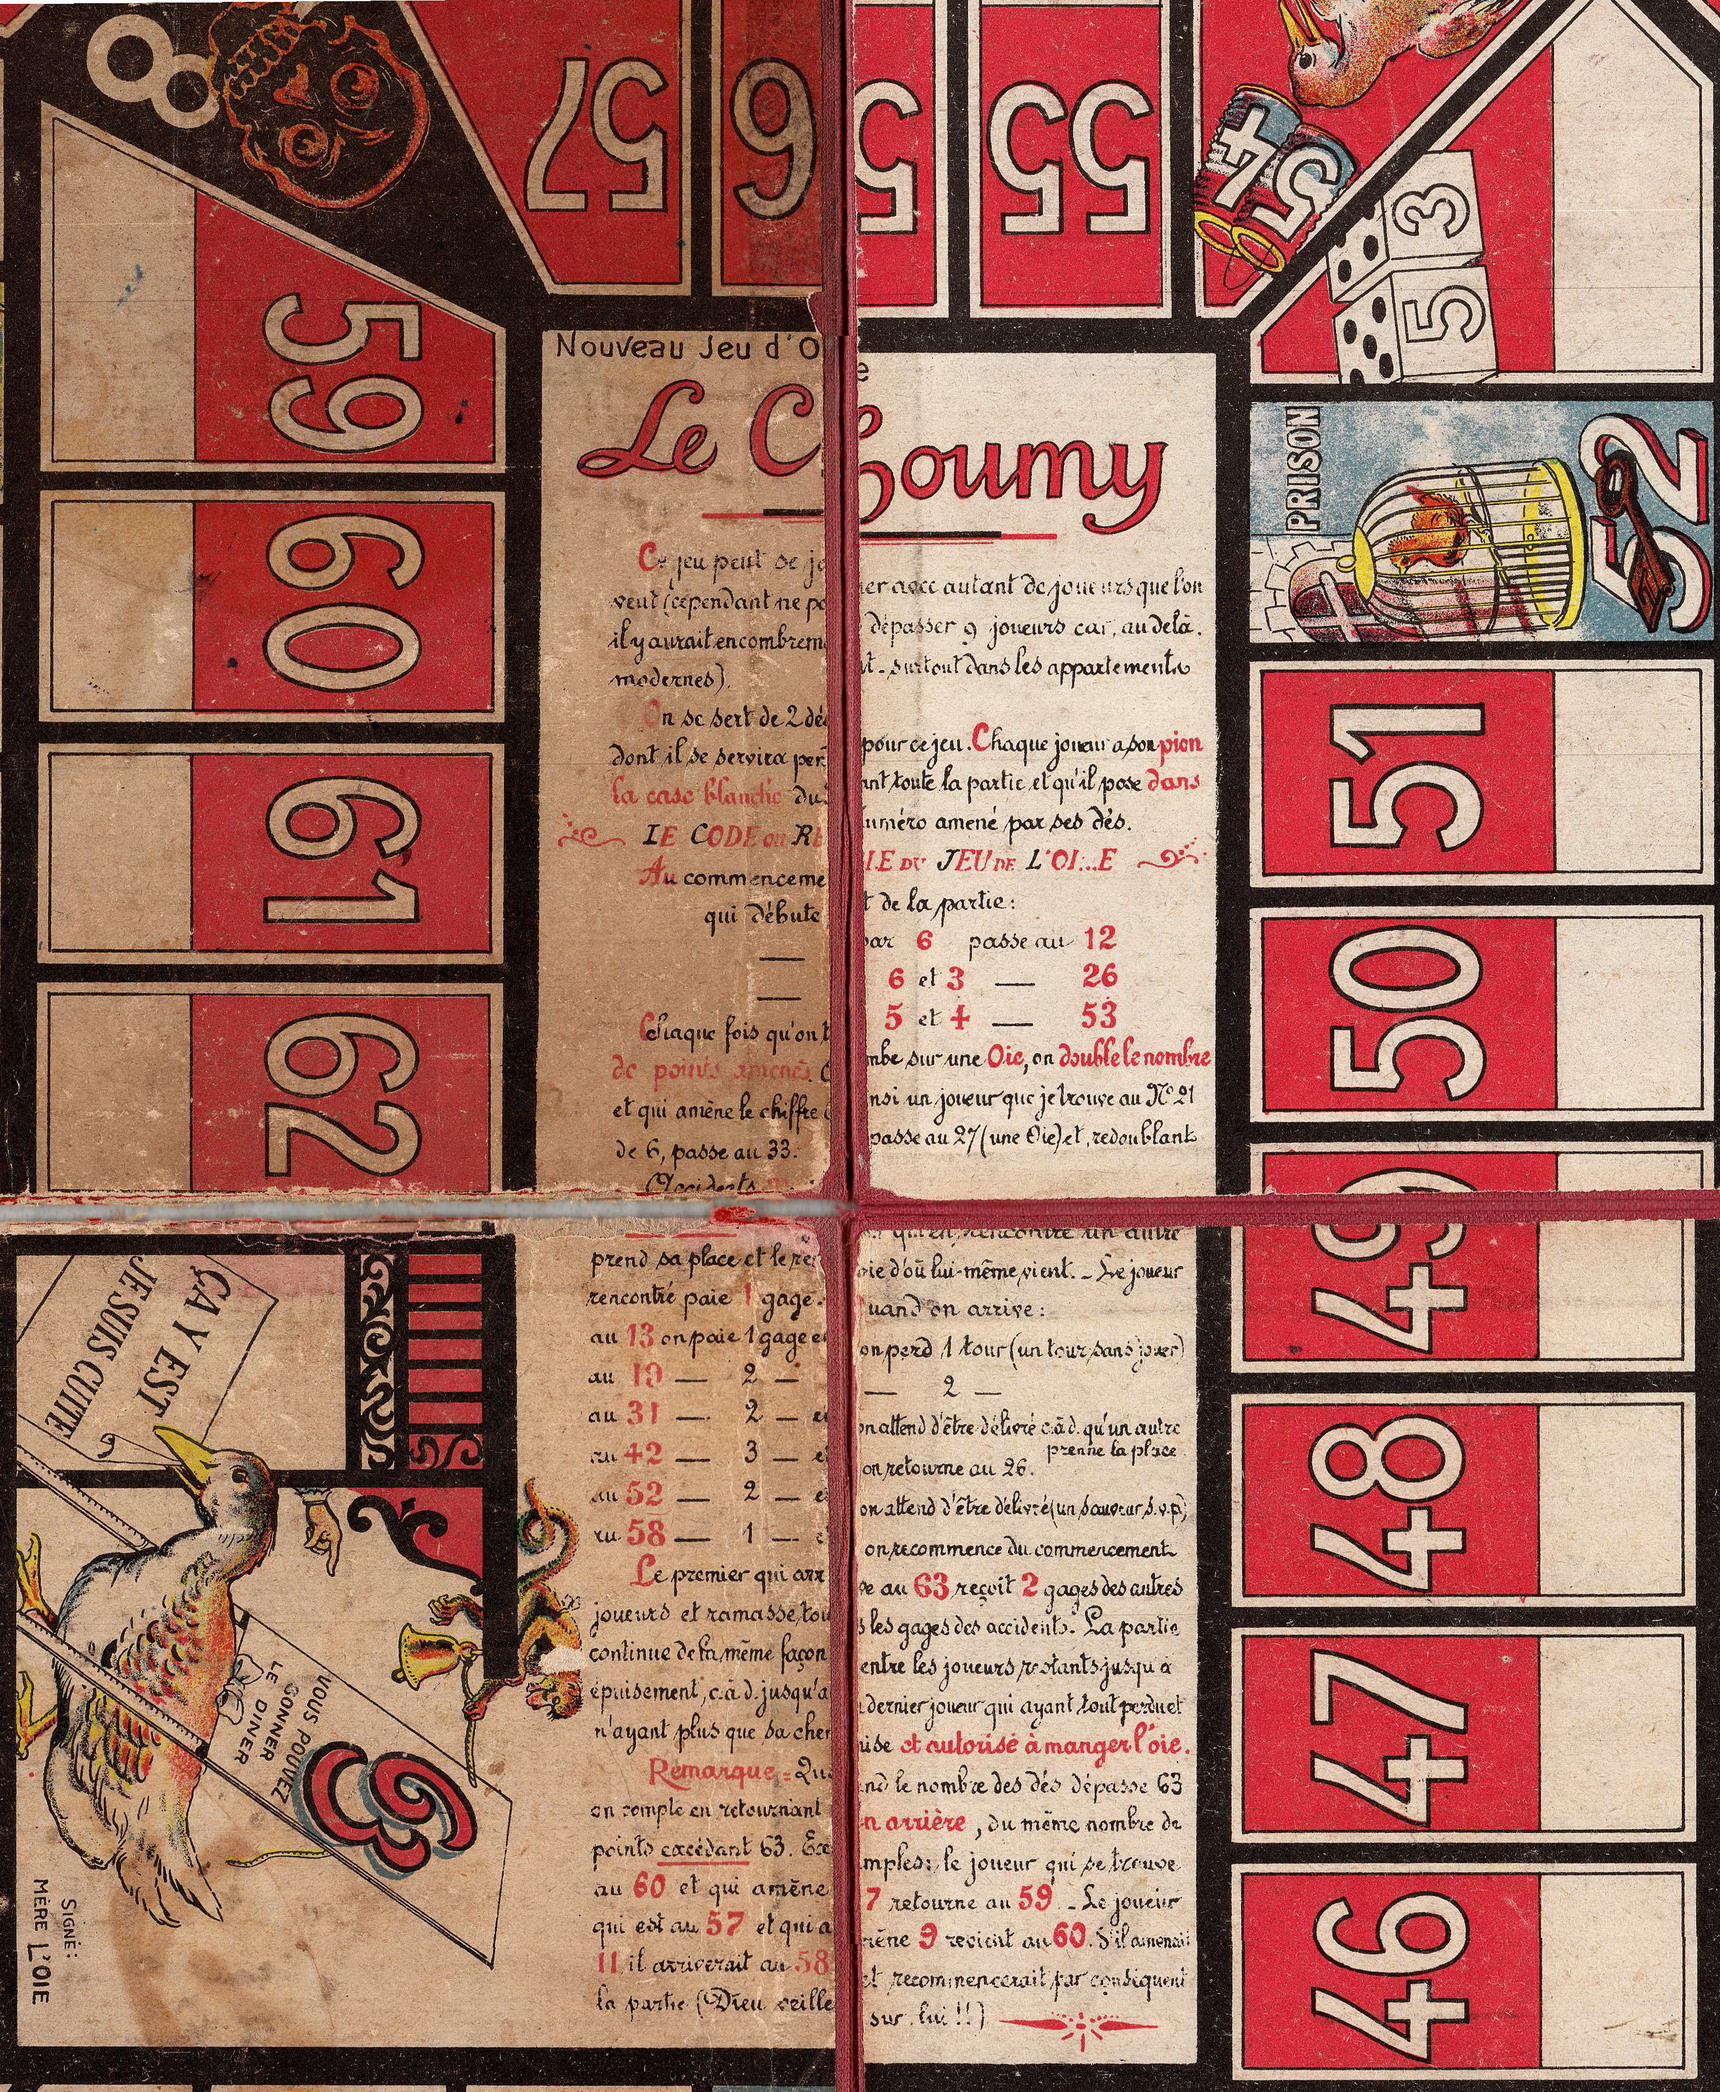 8
57
56
55
54
5 3
59
60
61
62
PRISON
52
51
50
49
48
47
46
Nouveau Jeu d'O e
Le Choumy
Ce jeu peut se jouer avec autant de joueurs que l'on
veut (cependant ne pas dépasser 9 joueurs car, au delà,
il y aurait encombrement - surtout dans les appartements
modernes).
On se sert de 2 dés pour ce jeu. Chaque joueur a son pion
dont il se servira pendant toute la partie et qu'il pose dans
la case blanche du numéro amené par ses dés.
LE CODE ou RÈGLE DU JEU DE L'OI...E
Au commencement de la partie:
qui débute par 6 passe au 12
— 6 et 3 — 26
— 5 et 4 — 53
Chaque fois qu'on tombe sur une Oie, on double le nombre
de points amenés. Ainsi un joueur que je trouve au Nº 21
et qui amène le chiffre 6 passe au 27 (une Oie) et, redoublant
de 6, passe au 33.
Accidents
qu'en, rencontre un autre
prend sa place et le renvoie d'où lui-même vient. - Le joueur
rencontré paie 1 gage. Quand on arrive:
au 13 on paie 1 gage et on perd 1 tour (un tour sans jouer)
au 19 — 2 — — 2 —
au 31 — 2 — et on attend d'être délivré c.à.d. qu'un autre
prenne la place
au 42 — 3 — et on retourne au 26.
au 52 — 2 — et on attend d'être délivré (un sauveur s.v.p)
au 58 — 1 — et on recommence du commencement
Le premier qui arrive au 63 reçoit 2 gages des autres
joueurs et ramasse tous les gages des accidents. La partie
continue de la même façon entre les joueurs restants jusqu'à
épuisement, c.à.d. jusqu'au dernier joueur qui ayant tout perdu et
n'ayant plus que sa chemise est autorisé à manger l'oie.
Remarque - Quand le nombre des dés dépasse 63
on compte en retournant en arrière, du même nombre de
points excédant 63. Exemples: le joueur qui se trouve
au 60 et qui amène 7 retourne au 59. - Le joueur
qui est au 57 et qui amène 9 revient au 60. S'il amenait
11 il arriverait au 58 et recommencerait par conséquent
la partie (Dieu veille sur lui!!)
ÇA Y EST
JE SUIS CUITE
VOUS POUVEZ
SONNER
LE DINER
63
SIGNÉ:
MÈRE L'OIE